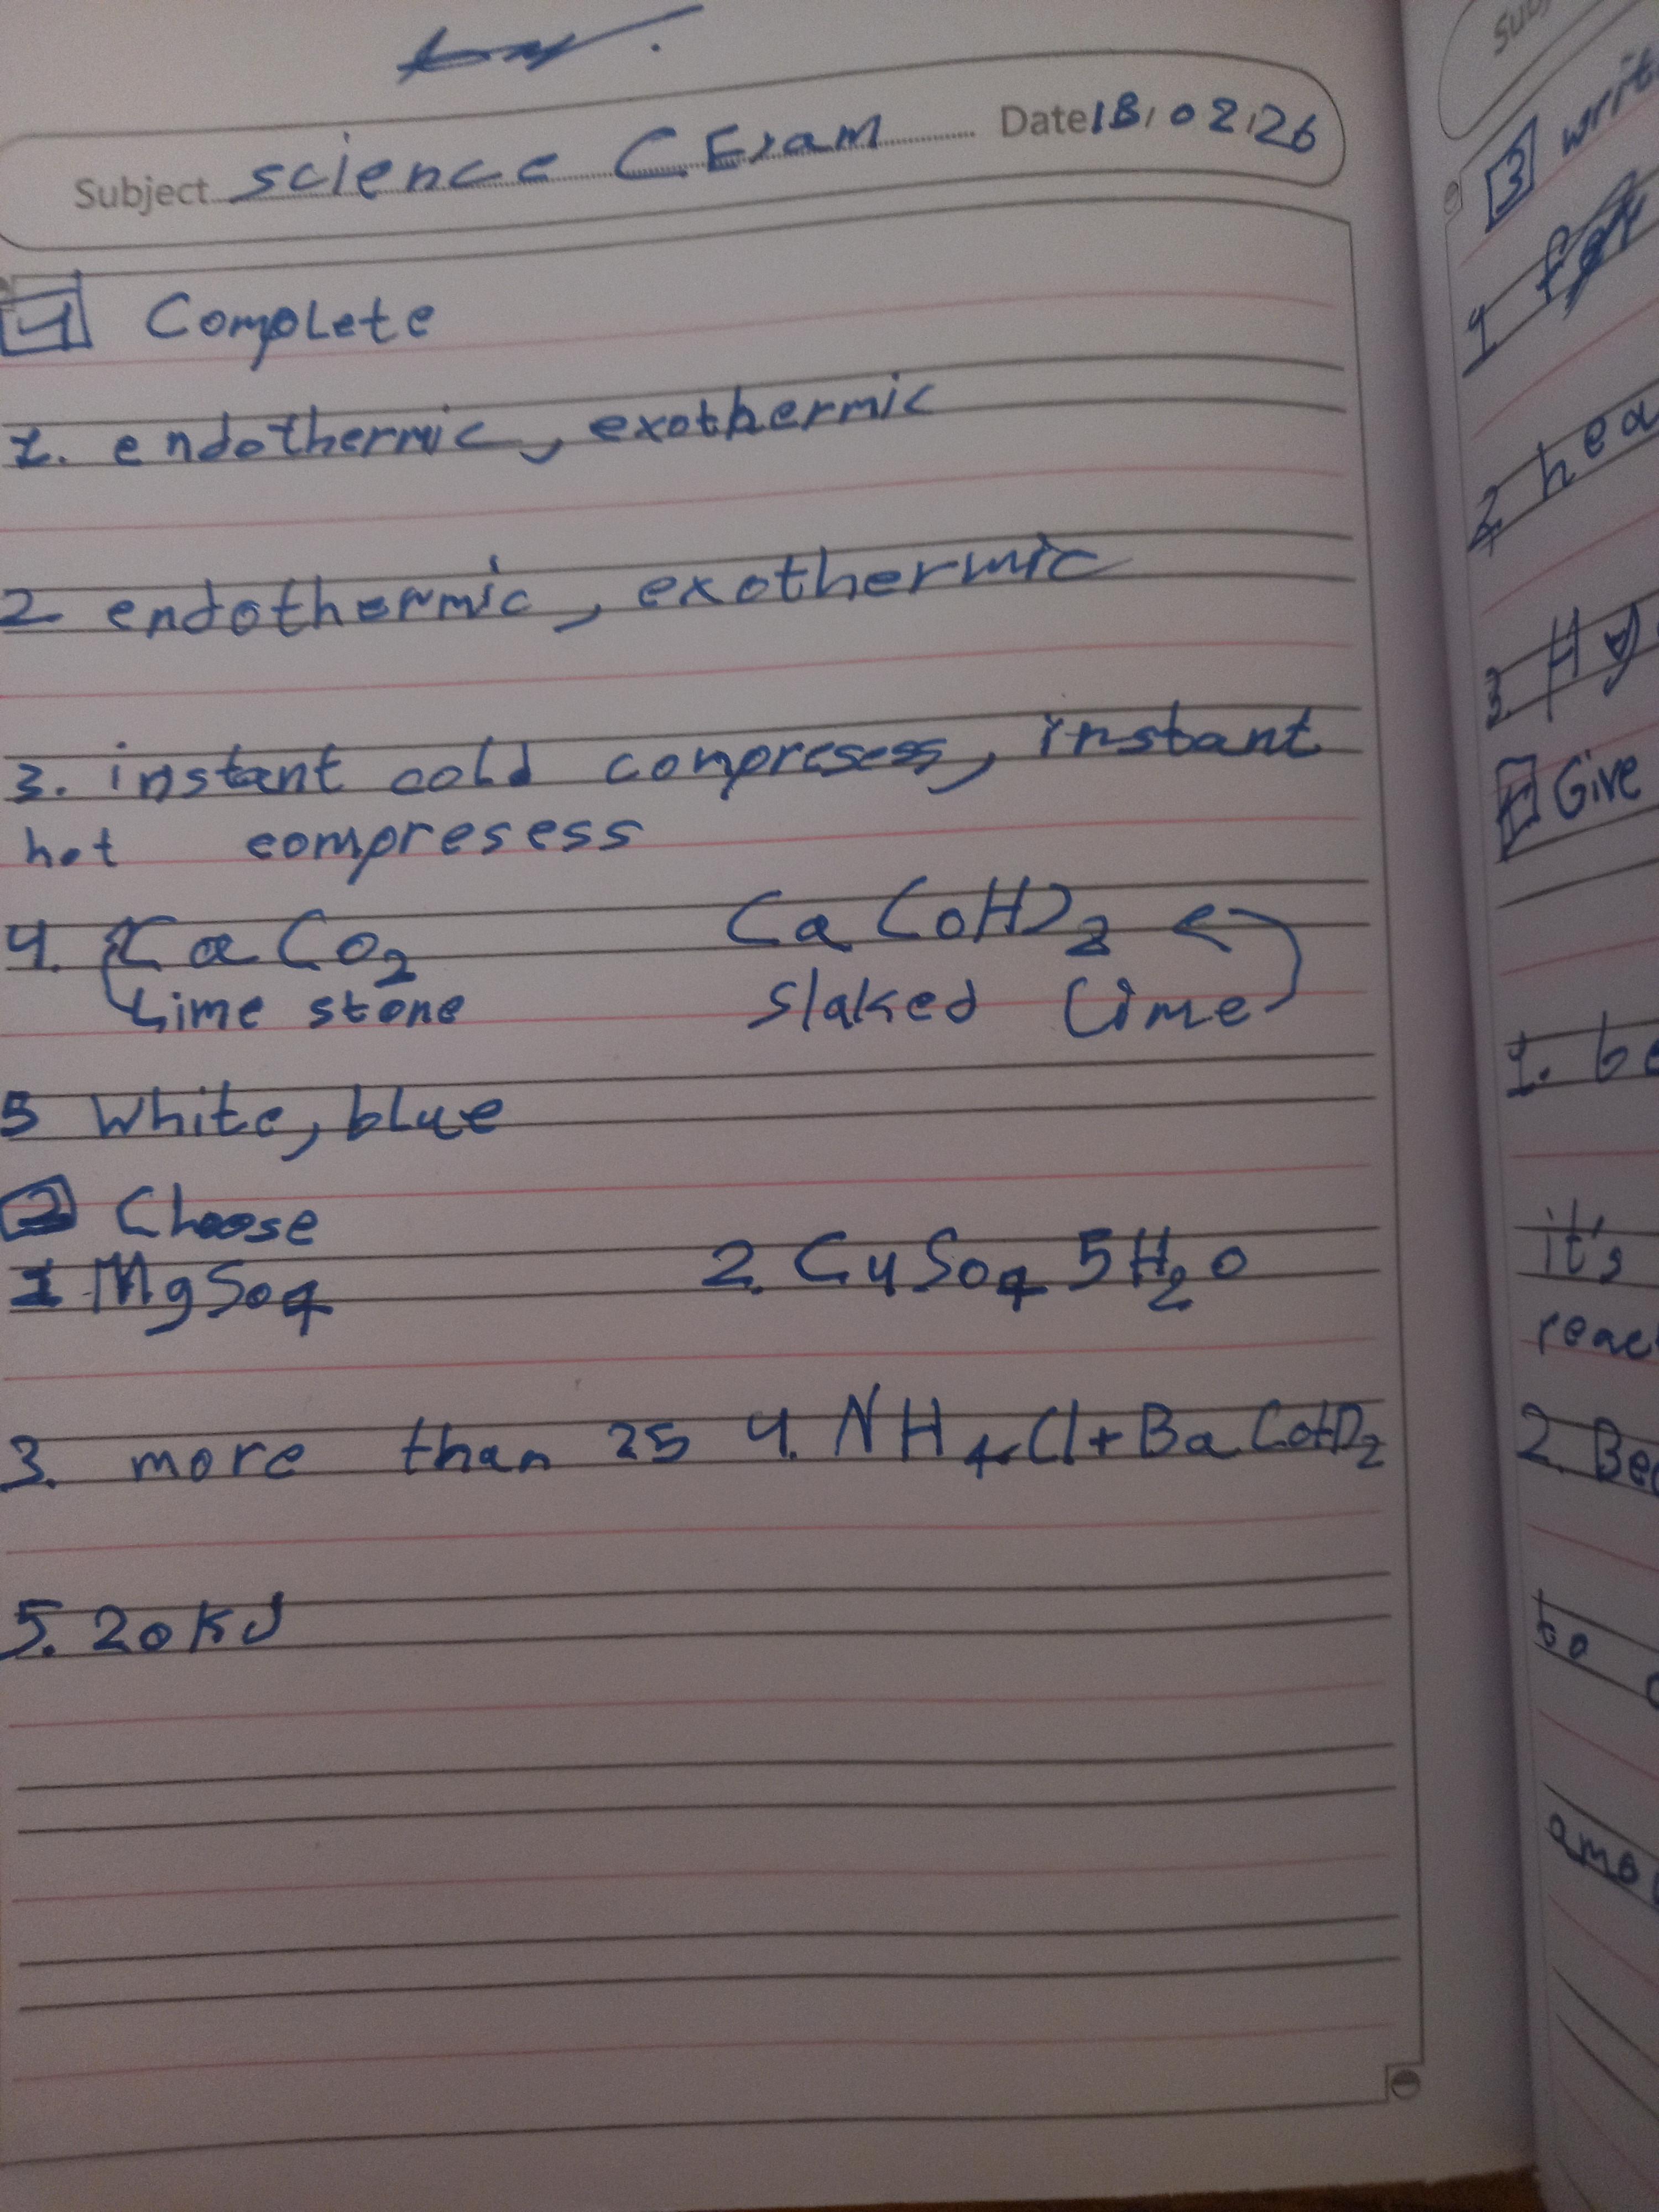 Subject science C Exam Date 18/02/26
1 Complete
1. endothermic, exothermic
2 endothermic, exothermic
3. instant cold compresess, instant
hot compresess
4. CaCO2 Ca(OH)2
Lime stone slaked lime
5 White, blue
2 Choose
1 MgSO4 2. CuSO4 5H2O
3. more than 25 4. NH4Cl + Ba(OH)2
5. 20 KJ
3
1
2
3. Hy
Give
1. be
it's
reac
2. Be
to
amo